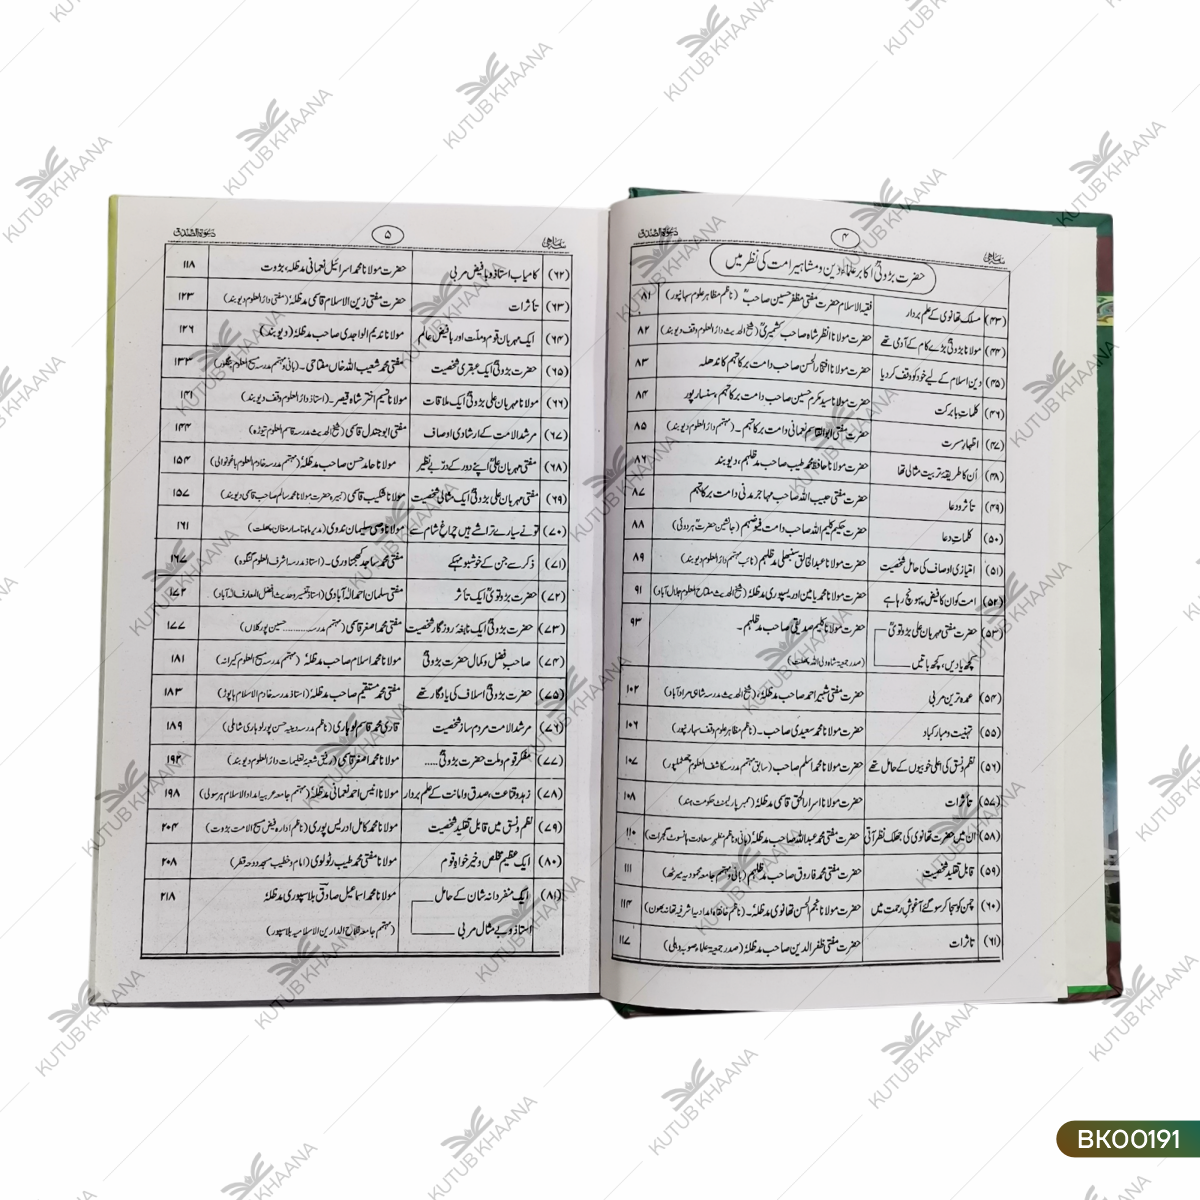 سہ ماہی
۴
دعوۃ الصدق
حضرت بڑوتیؒ اکابر علماءِ دین و مشاہیر امت کی نظر میں
(۴۳) مسلک تھانوی کے علم بردار فقیہ الاسلام حضرت مفتی مظفر حسین صاحبؒ (ناظم مظاہر علوم سہارنپور) ۸۱
(۴۴) مولانا بڑوتیؒ بڑے کام کے آدمی تھے حضرت مولانا انظر شاہ صاحب کشمیریؒ (شیخ الحدیث دارالعلوم وقف دیوبند) ۸۲
(۴۵) دین اسلام کے لیے خود کو وقف کر دیا حضرت مولانا افتخار الحسن صاحب دامت برکاتہم کاندھلہ ۸۳
(۴۶) کلمات بابرکت حضرت مولانا سید مکرم حسین صاحب دامت برکاتہم، سنسارپور ۸۴
(۴۷) اظہار مسرت حضرت مفتی ابوالقاسم نعمانی دامت برکاتہم۔ (مہتمم دارالعلوم دیوبند) ۸۵
(۴۸) اُن کا طریقۂ تربیت مثالی تھا حضرت مولانا حافظ محمد طیب صاحب مدظلہم، دیوبند ۸۶
(۴۹) تاثر و دعا حضرت مفتی حبیب اللہ صاحب مہاجر مدنی دامت برکاتہم ۸۷
(۵۰) کلمات دعا حضرت حکیم کلیم اللہ صاحب دامت فیوضہم (جانشین حضرت ہردوئی) ۸۸
(۵۱) امتیازی اوصاف کی حامل شخصیت حضرت مولانا عبدالخالق سنبھلی مدظلہم (نائب مہتمم دارالعلوم دیوبند) ۸۹
(۵۲) امت کو ان کا فیض پہونچ رہا ہے حضرت مولانا محمد یامین اور یسپوری مدظلہٗ (شیخ الحدیث مفتاح العلوم جلال آباد) ۹۱
(۵۳) حضرت مفتی مہربان علی بڑوتویؒ حضرت مولانا کلیم صدیقی صاحب مدظلہم۔ ۹۳
کچھ یادیں، کچھ باتیں (صدر جمعیۃ شاہ ولی اللہ پھلت)
(۵۴) عمدہ ترین مربی حضرت مفتی شبیر احمد صاحب مدظلہٗ، (شیخ الحدیث مدرسہ شاہی مرادآباد) ۱۰۲
(۵۵) تہنیت و مبارکباد حضرت مولانا محمد سعیدی صاحب۔ (ناظم مظاہر علوم وقف سہارنپور) ۱۰۶
(۵۶) نظم و نسق کی اعلیٰ خوبیوں کے حامل تھے حضرت مولانا محمد اسلم صاحب (سابق مہتمم مدرسہ کاشف العلوم چھٹملپور) ۱۰۷
(۵۷) تأثرات حضرت مولانا اسرار الحق قاسمی مدظلہٗ (ممبر پارلیمنٹ حکومت ہند) ۱۰۸
(۵۸) ان میں حضرت تھانوی کی جھلک نظر آتی حضرت مفتی محمد عبداللہ صاحب مدظلہٗ (بانی و مہتمم مظہر سعادت ہانسوٹ گجرات) ۱۱۰
(۵۹) قابل تقلید شخصیت حضرت مفتی محمد فاروق صاحب مدظلہم (بانی و مہتمم جامعہ محمودیہ میرٹھ) ۱۱۱
(۶۰) چمن کو سجا کر سو گئے آغوشِ رحمت میں حضرت مولانا نجم الحسن تھانوی مدظلہٗ۔ (ناظم خانقاہ امدادیہ اشرفیہ تھانہ بھون) ۱۱۴
(۶۱) تاثرات حضرت مفتی ظفر الدین صاحب مدظلہٗ (صدر جمعیۃ علماء صوبہ دہلی) ۱۱۷
سہ ماہی
۵
دعوۃ الصدق
(۶۲) کامیاب استاذ و بافیض مربی حضرت مولانا محمد اسرائیل نعمانی مدظلہ، بڑوت ۱۱۸
(۶۳) تأثرات حضرت مفتی زین الاسلام قاسمی مدظلہٗ (مفتی دارالعلوم دیوبند) ۱۲۳
(۶۴) ایک مہربان قوم و ملت اور بافیض عالم مولانا ندیم الواجدی صاحب مدظلہٗ (دیوبند) ۱۲۶
(۶۵) حضرت بڑوتیؒ ایک عبقری شخصیت مفتی محمد شعیب اللہ خاں مفتاحی۔ (بانی و مہتمم مدرسہ مسیح العلوم بنگلور) ۱۳۳
(۶۶) مولانا مہربان علی بڑوتیؒ ایک ملاقات مولانا نسیم اختر شاہ قیصر۔ (استاذ دارالعلوم وقف دیوبند) ۱۴۱
(۶۷) مرشد الامت کے ارشادی اوصاف مفتی ابوجندل قاسمی (شیخ الحدیث مدرسہ قاسم العلوم تیوڑہ) ۱۴۴
(۶۸) مفتی مہربان علیؒ اپنے دور کے درّ بے نظیر مولانا حامد حسن صاحب مدظلہٗ (مہتمم مدرسہ خادم العلوم باغونوالی) ۱۵۴
(۶۹) مفتی مہربان علی بڑوتیؒ ایک مثالی شخصیت مولانا شکیب قاسمی (نبیرہ حضرت مولانا محمد سالم صاحب قاسمی دیوبند) ۱۵۷
(۷۰) تونے سیارے تراشے ہیں چراغ شام سے مولانا وصی سلیمان ندوی (مدیر ماہنامہ ارمغان پھلت) ۱۶۱
(۷۱) ذکر سے جن کے خوشبو مہکے مفتی محمد ساجد کھجناوری۔ (استاذ مدرسہ اشرف العلوم گنگوہ) ۱۶۷
(۷۲) حضرت بڑوتویؒ ایک تأثر مفتی سلمان احمد الہ آبادی (استاذ تفسیر و حدیث افضل المعارف الہ آباد) ۱۷۲
(۷۳) حضرت بڑوتیؒ ایک نابغۂ روزگار شخصیت مفتی محمد اصغر قاسمی (مہتمم مدرسہ......... حسین پور کلاں) ۱۷۷
(۷۴) صاحب فضل و کمال حضرت بڑوتیؒ مولانا محمد اسلام صاحب مدظلہٗ (مہتمم مدرسہ مسیح العلوم کیرانہ) ۱۸۱
(۷۵) حضرت بڑوتیؒ اسلاف کی یادگار تھے مفتی محمد مستقیم صاحب مدظلہٗ (استاذ مدرسہ خادم الاسلام ہاپوڑ) ۱۸۳
(۷۶) مرشد الامت مردم ساز شخصیت قاری محمد قاسم لوہاری (ناظم مدرسہ دینیہ حسن پور لوہاری شاملی) ۱۸۹
(۷۷) مفکر قوم و ملت حضرت بڑوتیؒ ...... مولانا محمد اصغر قاسمی (رفیق شعبۂ تعلیمات دارالعلوم دیوبند) ۱۹۴
(۷۸) زہد و قناعت، صدق و امانت کے علم بردار مولانا انیس احمد نعمانی مدظلہٗ (مہتمم جامعہ عربیہ امداد الاسلام ہرسولی) ۱۹۸
(۷۹) نظم و نسق میں قابل تقلید شخصیت مولانا محمد کامل ادریس پوری (ناظم ادارہ فیض مسیح الامت بڑوت) ۲۰۴
(۸۰) ایک عظیم مخلص و خیر خواہِ قوم مولانا مفتی محمد طیب رٹولوی (امام و خطیب مسجد دوحہ قطر) ۲۰۸
(۸۱) ایک منفردانہ شان کے حامل مولانا محمد اسماعیل صادق بلاسپوری مدظلہٗ ۲۱۸
استاذ و بے مثال مربی (مہتمم جامعہ فلاح الدارین الاسلامیہ بلاسپور)
KUTUB KHAANA
BK00191